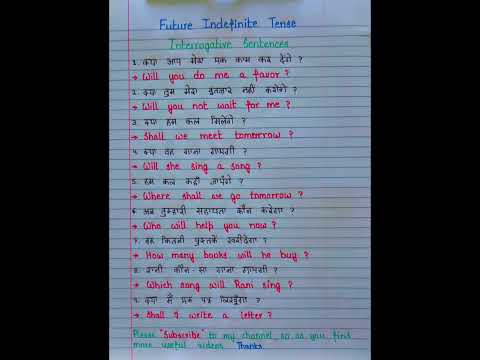 Future Indefinite Tense
Interrogative Sentences
1. क्या आप मेरा एक काम कर देंगे ?
→ Will you do me a favor ?
2. क्या तुम मेरा इंतजार नहीं करोगे ?
→ Will you not wait for me ?
3. क्या हम कल मिलेंगे ?
→ Shall we meet tomorrow ?
4. क्या वह गाना गाएगी ?
→ Will she sing a song ?
5. हम कल कहाँ जाएँगे ?
→ Where shall we go tomorrow ?
6. अब तुम्हारी सहायता कौन करेगा ?
→ Who will help you now ?
7. वह कितनी पुस्तकें खरीदेगा ?
→ How many books will he buy ?
8. रानी कौन-सा गाना गाएगी ?
→ Which song will Rani sing ?
9. क्या मैं एक पत्र लिखूँगा ?
→ Shall I write a letter ?
Please "Subscribe" to my channel so as you find
more useful videos. Thanks.